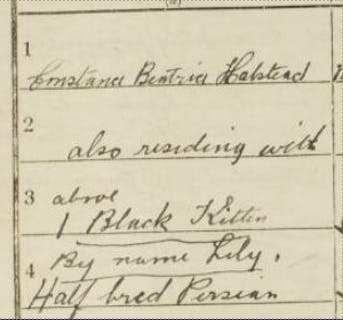 (a)
1
Constance Beatrice Halstead
2
also residing with
3 above
1 Black Kitten
4 By name Lily,
Half bred Persian